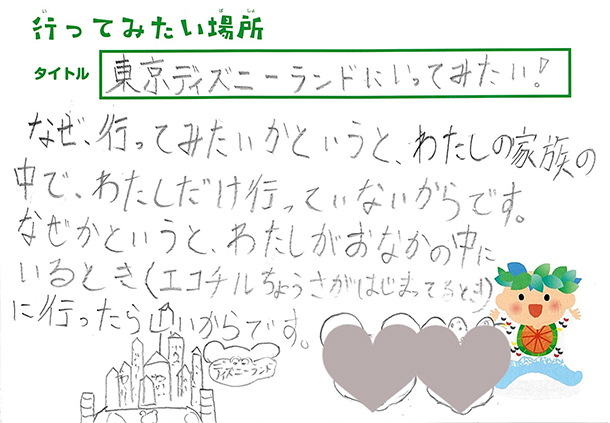 行ってみたい場所
タイトル 東京ディズニーランドにいってみたい！
なぜ、行ってみたいかというと、わたしの家族の
中で、わたしだけ行っていないからです。
なぜかというと、わたしがおなかの中に
いるとき(エコチルちょうさがはじまってるとき)
に行ったらしいからです。
ディズニーランド